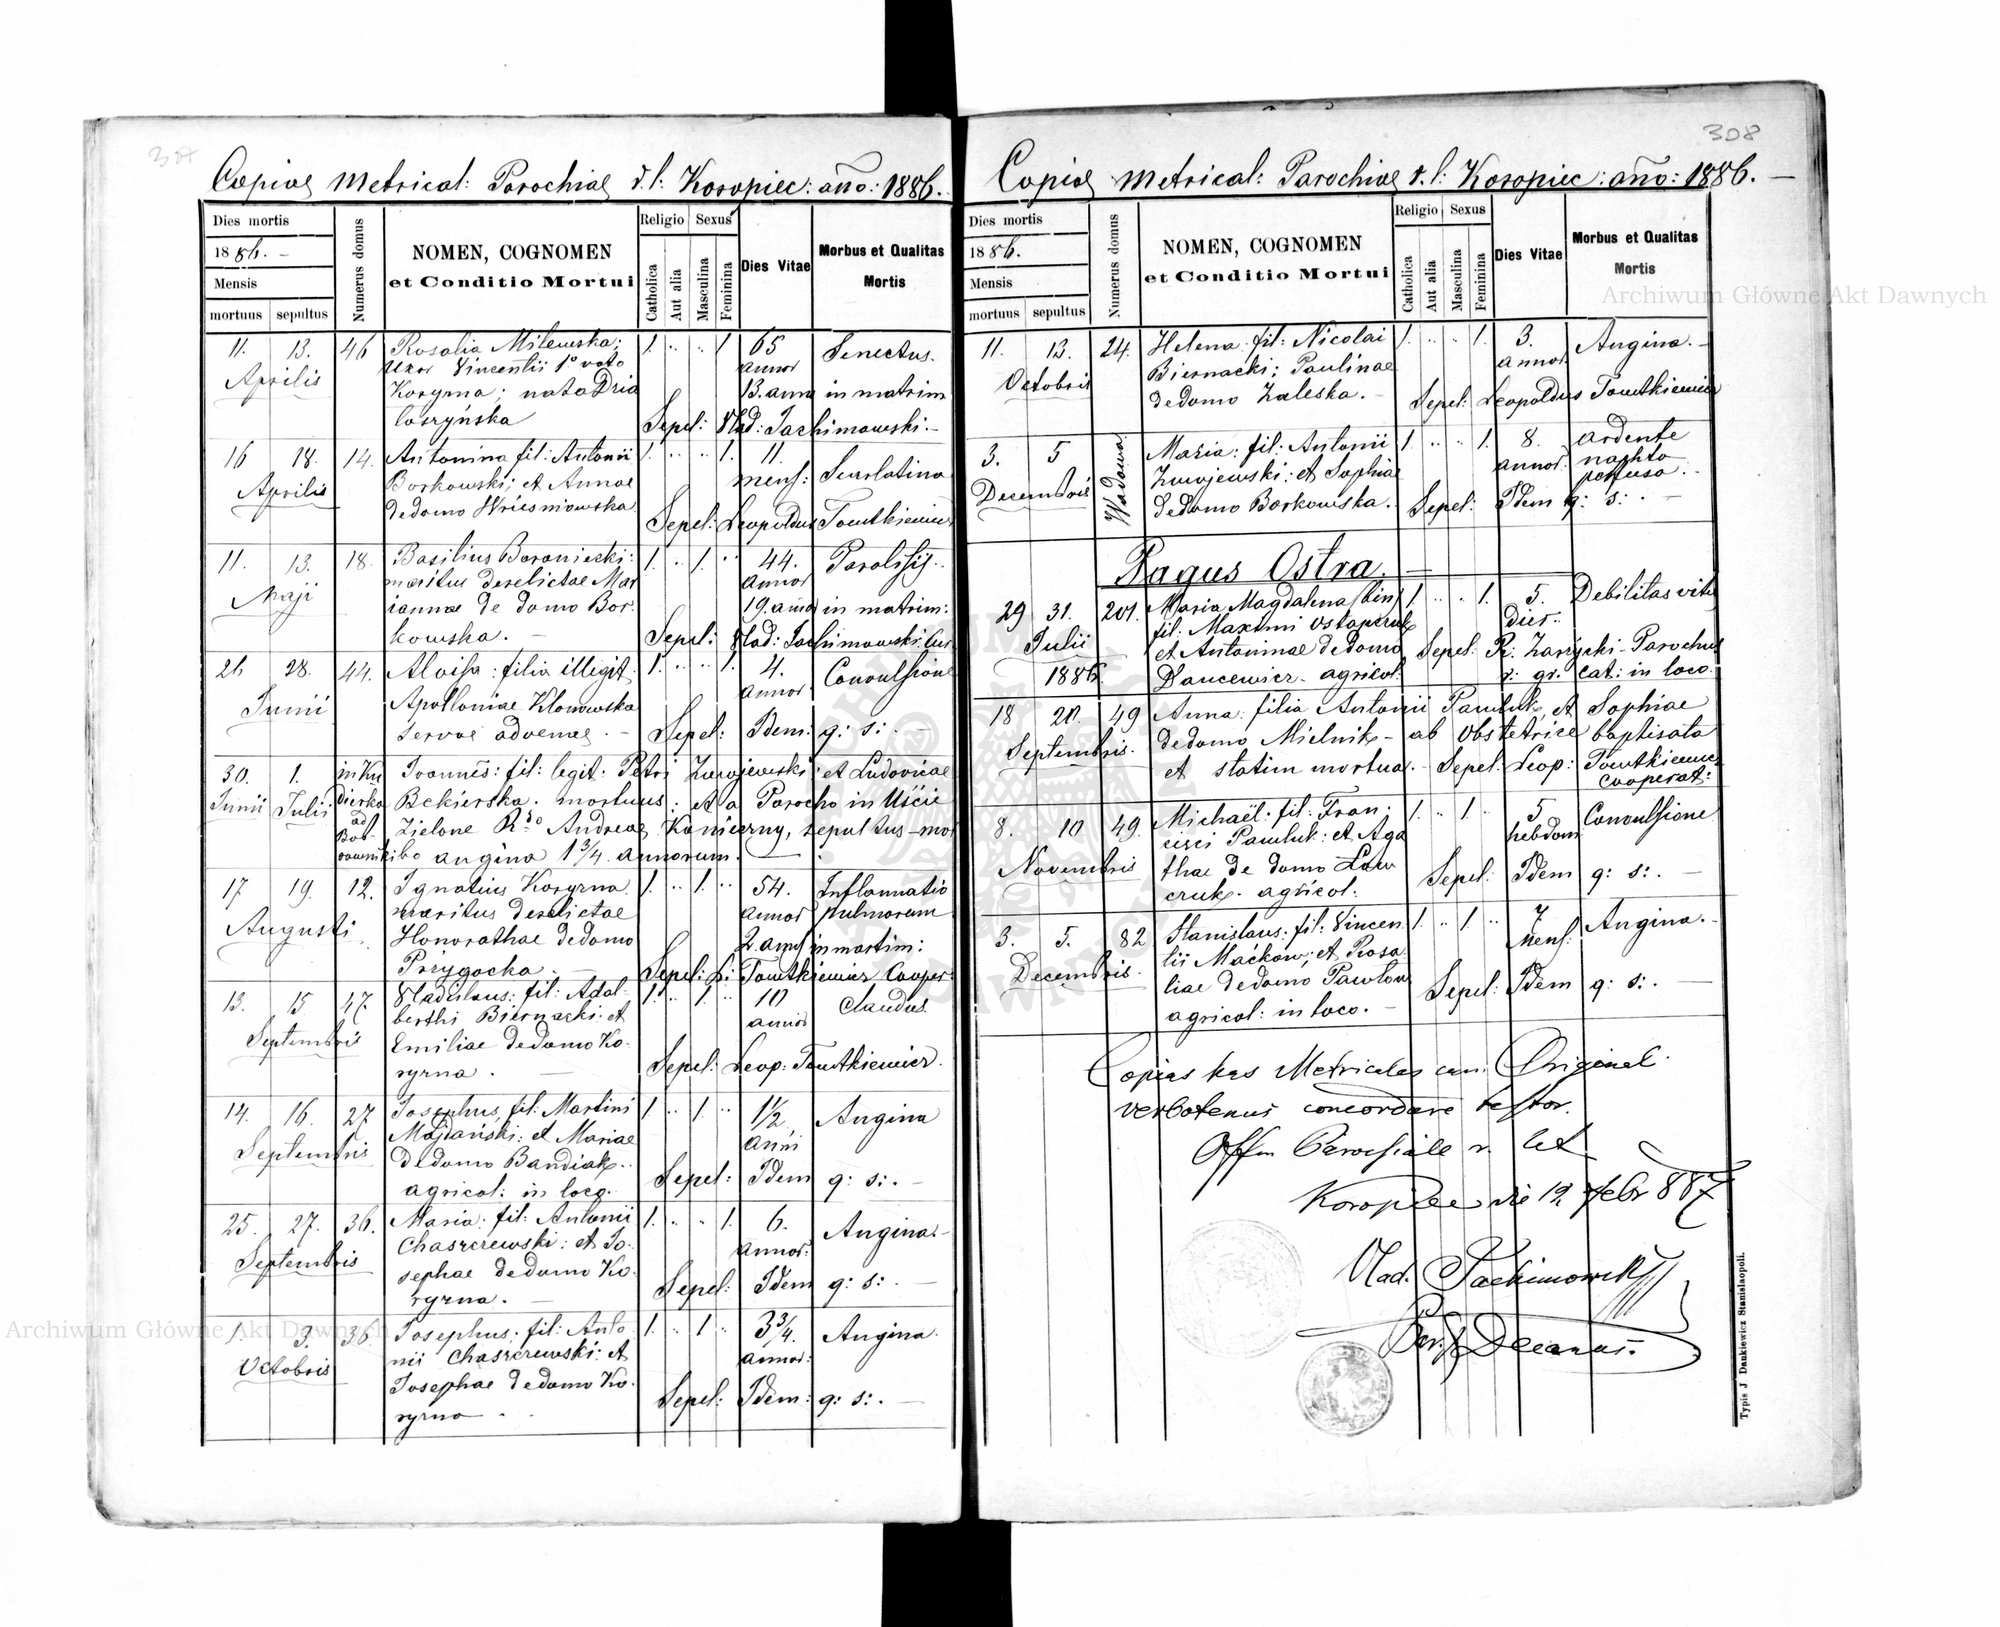 308
Copiae Metrical: Parochiae r. l: Koropiec: año: 1886.
Dies mortis
1886.
Mensis
mortuus sepultus
Numerus domus
NOMEN, COGNOMEN
et Conditio Mortui
Religio Sexus
Catholica
Aut alia
Masculina
Feminina
Dies Vitae
Morbus et Qualitas
Mortis
11. 13. 46 Rosalia Milewska; 1. " " 1 65 Senectus.
Aprilis Uxor Vincentii 1º voto annor
Koryrna; nata Dzia 13. anno in matrim
łoszyńska Sepel: Vlad: Jachimowski.-
16 18. 14. Antonina fil: Antonii 1. " " 1. 11. Scarlatina
Aprilis Borkowski; et Annae mens:
de domo Wriesniowska Sepel: Leopoldus Tomtkiewicz
11. 13. 18. Basilius Baraniecki: 1. " 1. " 44. Paralisij.
Maji maritus derelictae Mar annor
iannae de domo Bor: 19. anno in matrim:
kowska. Sepel: Vlad: Jachimowski
26 28. 44. Aloisa: filia illegit. 1. " " 1. 4. Convulsione
Junii Apolloniae Klonowska annor
servae advenae. Sepel: Idem: q: s: .
30. 1. Joannes: fil: legit: Petri Zwojewski: et Ludovicae
Junii Julii Bekierska. mortuus: et a Parocho in Uście
Zielone Andreas Konierny, sepultus - mor
bo angina 1 3/4. annorum.
17 19. 12. Ignatius Koryrna. 1. " 1. " 54. Inflamatio
Augusti maritus derelictae annor pulmorum
Honorathae de domo 2. anno in martim:
Przygocka. Sepel: L: Tomtkiewicz Cooper:
13. 15 47. Vladislaus: fil: Adal 1. " 1. " 10 Claudus.
Septembris berthi Biernacki: et annor
Emiliae de domo Ko-
ryrna. Sepel: Leop: Tomtkiewicz.
14. 16. 27 Josephus fil: Martini 1 " 1. " 1½ Angina
Septembris Majdański: et Mariae anni
de domo Bandiak.
agricol: in loco. Sepel: Idem q: s: .
25. 27. 36. Maria: fil: Antonii 1. " " 1. 6. Angina.-
Septembris Chaszczewski: et Jo- annor:
sephae de domo Ko- Sepel: Idem q: s: .
ryrna.
1. 3. 36 Josephus: fil: Anto 1. " 1 " 3 3/4. Angina.
Octobris nii Chaszczewski: et annor:
Josephae de domo Ko- Sepel: Idem: q: s: .
ryrna
Copiae Metrical: Parochiae r. l: Koropiec: año: 1886.
Dies mortis
1886.
Mensis
mortuus sepultus
Numerus domus
NOMEN, COGNOMEN
et Conditio Mortui
Religio Sexus
Catholica
Aut alia
Masculina
Feminina
Dies Vitae
Morbus et Qualitas
Mortis
11. 13. 24. Helena fil: Nicolai 1. " " 1. 3. Angina.-
Octobris Biernacki; Paulinae annor
de domo Zaleska. Sepel: Leopoldus Tomtkiewicz
3. 5 Maria: fil: Antonii 1 " " 1. 8. ardente
Decembris Zwojewski: et Sophiae annor. naphta
de domo Borkowska. Sepel: Idem q: s: .
Pagus Ostra.
29 31. 201. Maria Magdalena 1. " " 1. 5. Debilitas vitae
Julii fil: Maximi Ostapczuk dier.
et Antoninae de domo Sepel: R: Zarycki Parochus
1886 Dancewicz - agricol: r: gr: cat: in loco.
18 20. 49 Anna: filia Antonii Pawluk, et Sophiae
Septembris. de domo Mielnik - ab Obstetrice baptisata
et statim mortua. Sepel: Leop: Tomtkiewicz
cooperat:
8. 10 49. Michaël: fil: Fran: 1. " 1. " 5 Convulsione
Novembris cisci Pawluk: et Aga hebdom
thae de domo Law Sepel: Idem q: s: .
cruk. agricol:
3. 5. 82 Stanislaus: fil: Vincen 1. " 1. " 7 Angina.
Decembris tii Maćkow; et Rosa mens:
liae de domo Pawlow Sepel: Idem q: s: .
agricol: in loco.
Copias has Metricales cum Original
verbotenus concordare testor.
Offm Parochiale r. lat
Koropiec die 12 Febr 887
Vlad. Jachimowski
Decanus.
Typis J Dankiewicz Stanislaopoli.
Archiwum Główne Akt Dawnych
Archiwum Główne Akt Dawnych